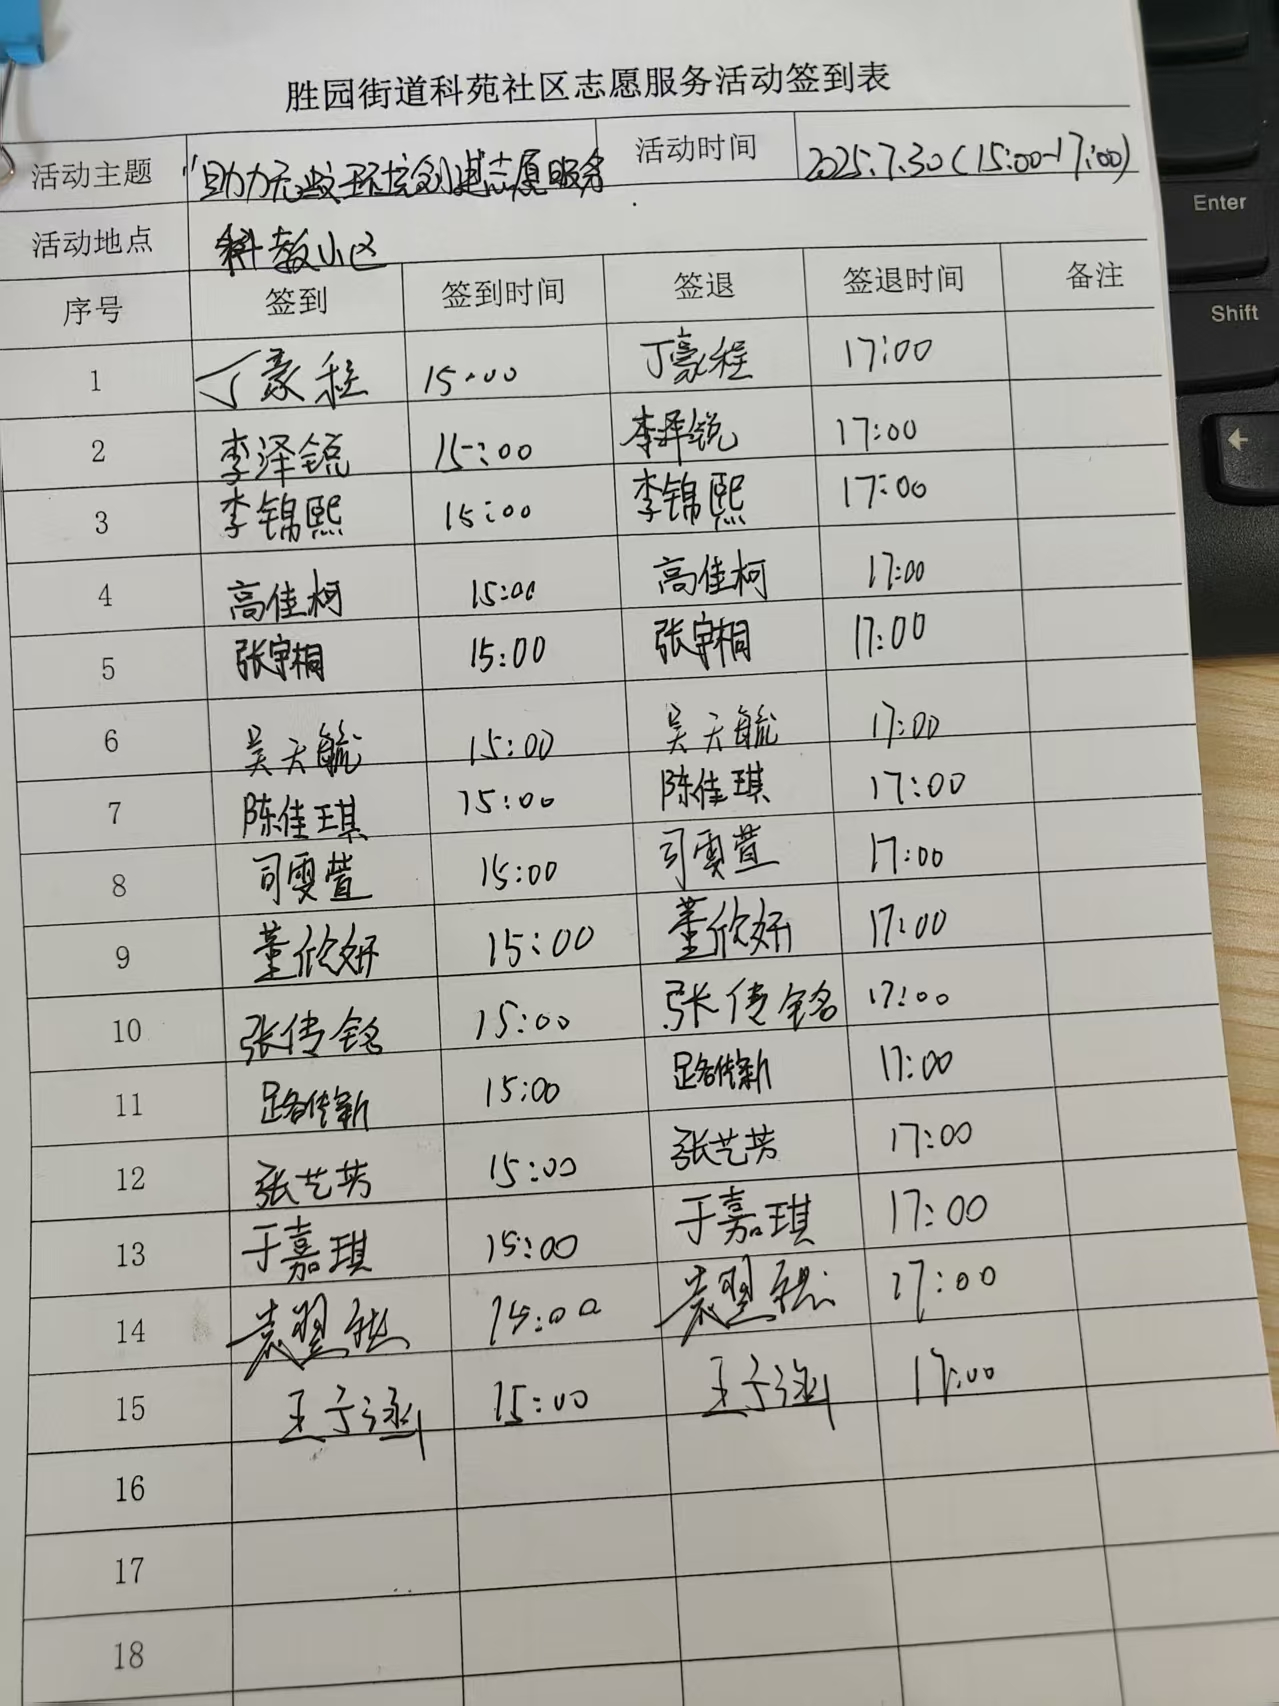 胜园街道科苑社区志愿服务活动签到表
活动主题 "助力无蚊环境创建志愿服务 活动时间 2025.7.30(15:00-17:00)
活动地点 科教小区
序号 签到 签到时间 签退 签退时间 备注
1 丁豪程 15:00 丁豪程 17:00
2 李泽锐 15:00 李泽锐 17:00
3 李锦熙 15:00 李锦熙 17:00
4 高佳柯 15:00 高佳柯 17:00
5 张宇桐 15:00 张宇桐 17:00
6 吴天毓 15:00 吴天毓 17:00
7 陈佳琪 15:00 陈佳琪 17:00
8 司雯萱 15:00 司雯萱 17:00
9 董欣妍 15:00 董欣妍 17:00
10 张传铭 15:00 张传铭 17:00
11 路传新 15:00 路传新 17:00
12 张艺芳 15:00 张艺芳 17:00
13 于嘉琪 15:00 于嘉琪 17:00
14 袁翌 15:00 袁翌 17:00
15 王子涵 15:00 王子涵 17:00
16
17
18
Enter
Shift